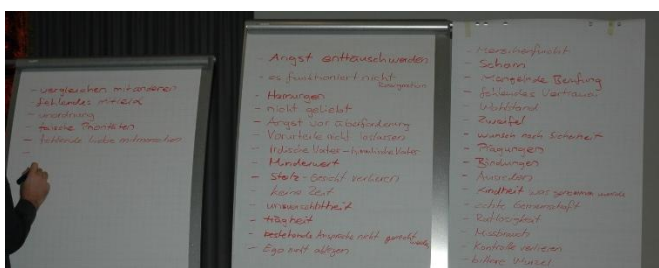 - vergleichen mit anderen
- fehlendes Mitleid
- unordnung
- falsche Prioritäten
- fehlende Liebe mitmenschen
-
- Angst enttäuscht werden
- es funktioniert nicht
Resignation
- Hemungen
- nicht geliebt
- Angst vor überforderung
- Vorurteile nicht loslassen
- Irdische Vater - himmlische Vater
- Minderwert
- Stolz - Gesicht verlieren
- keine Zeit
- unverschlitheit
- trägheit
- bestehende Ansprüche nicht gerecht werden
- Ego nicht ablegen
- Menschenfurcht
- Scham
- Mangelnde Berufung
- fehlendes Vertrauen
- Wohlstand
- Zweifel
- wunsch nach Sicherheit
- Prägungen
- Bindungen
- Ausreden
- Kindheit was genommen wurde
- echte Gemeinschaft
- Ratlosigkeit
- Missbrauch
- Kontrolle verlieren
- bittere Wurzel